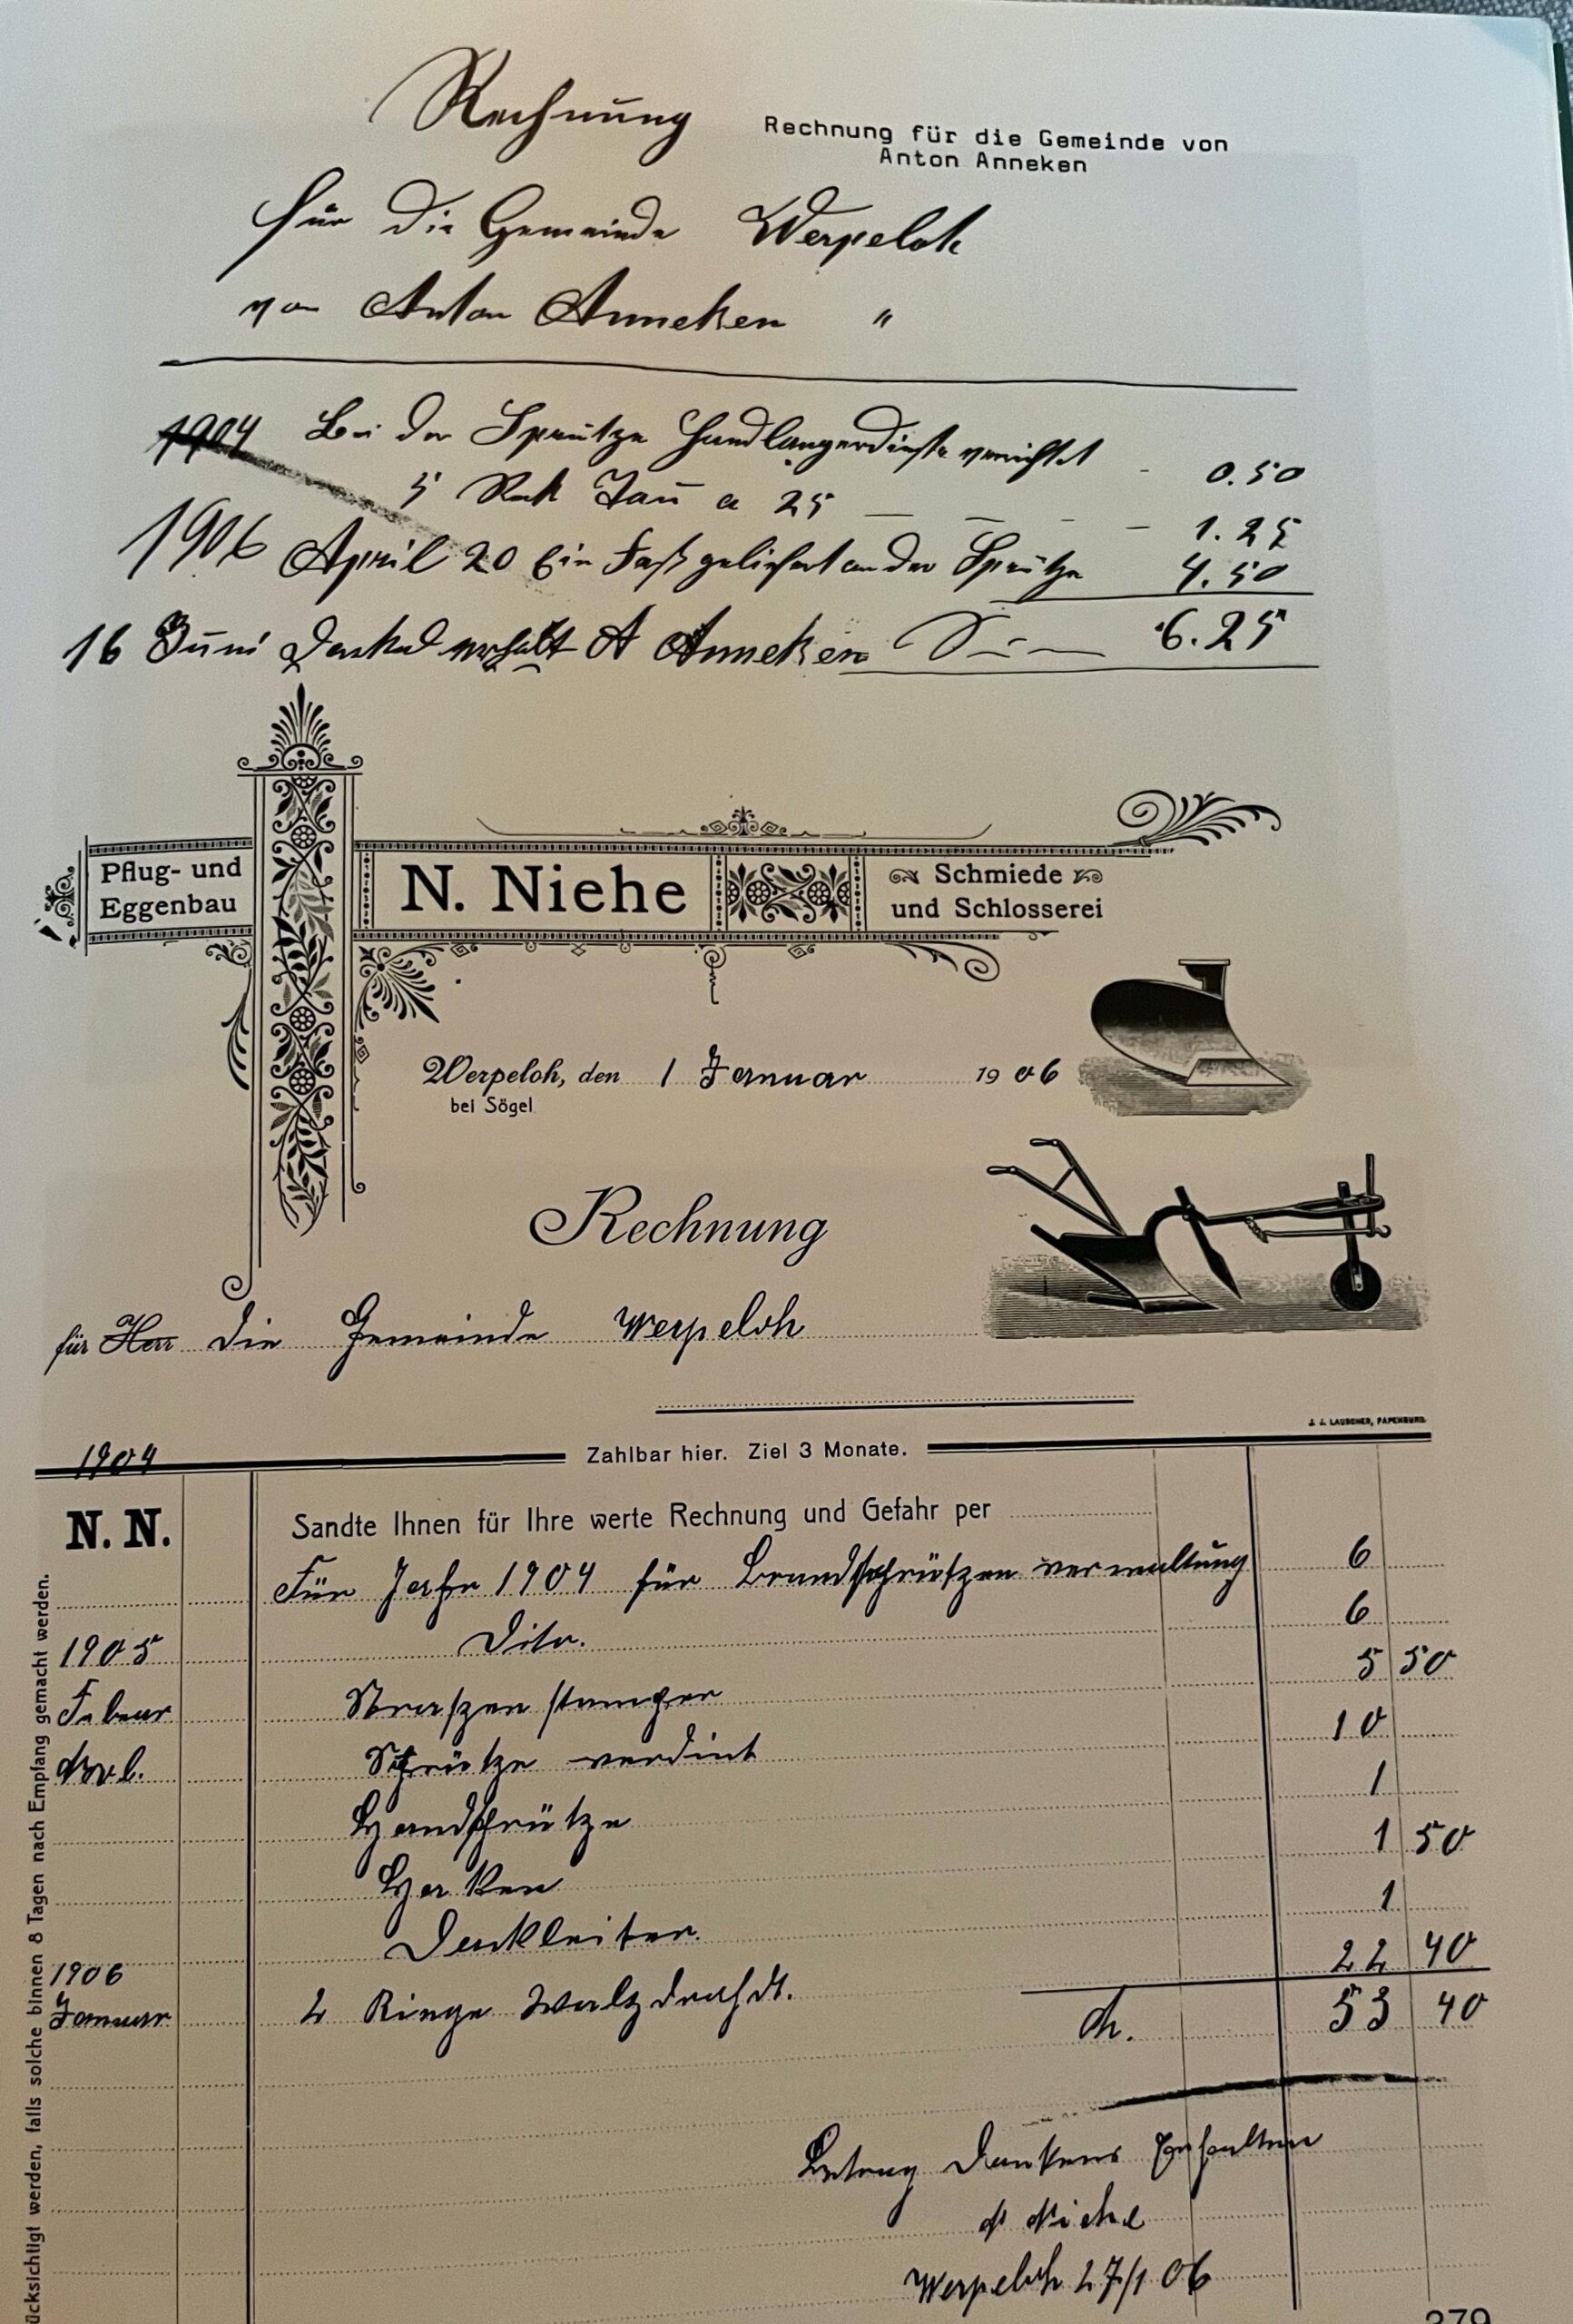 Rechnung
Rechnung für die Gemeinde von
Anton Anneken
für die Gemeinde Werpeloh
von Anton Anneken "
1904 Bei der Spritze Handlangerdienste verrichtet - 0.50
5 Tau a 25 — — - - 1.25
1906 April 20 Ein Faß geliefert an der Spritze 4.50
16 Juni Dankend erhalt A Anneken 6.25
Pflug- und
Eggenbau
N. Niehe
Schmiede
und Schlosserei
Werpeloh, den 1 Januar 1906
bei Sögel
Rechnung
für Herr Die Gemeinde Werpeloh
J. J. LAUSCHER, PAPENBURG
1904
Zahlbar hier. Ziel 3 Monate.
N. N.
Sandte Ihnen für Ihre werte Rechnung und Gefahr per
Für Jahr 1904 für Brandsprützen verwaltung 6
1905 Dito. 6
Febuar Straszen 5 50
Sprütze verdint 10
Handsprütze 1
Harken 1 50
1
1906
Januar 2 Ringe Walzdrahdt. 22 40
M. 53 40
Betrag Dankens Erhalten
N Niehe
Werpeloh 27/1 06
ücksichtigt werden, falls solche binnen 8 Tagen nach Empfang gemacht werden.
279